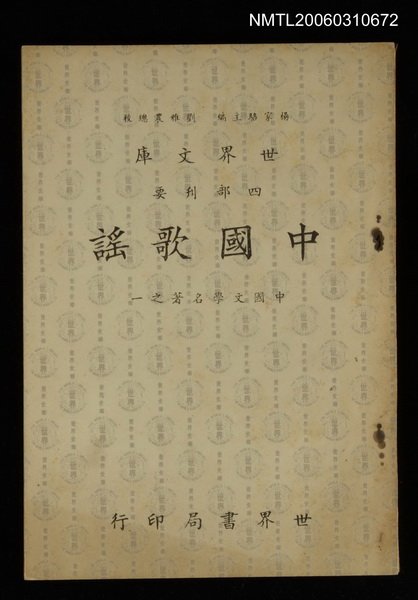 NMTL20060310672
楊家駱主編　劉雅農總校
世界文庫
四部刊要
中國歌謠
中國文學名著之一
世界書局印行